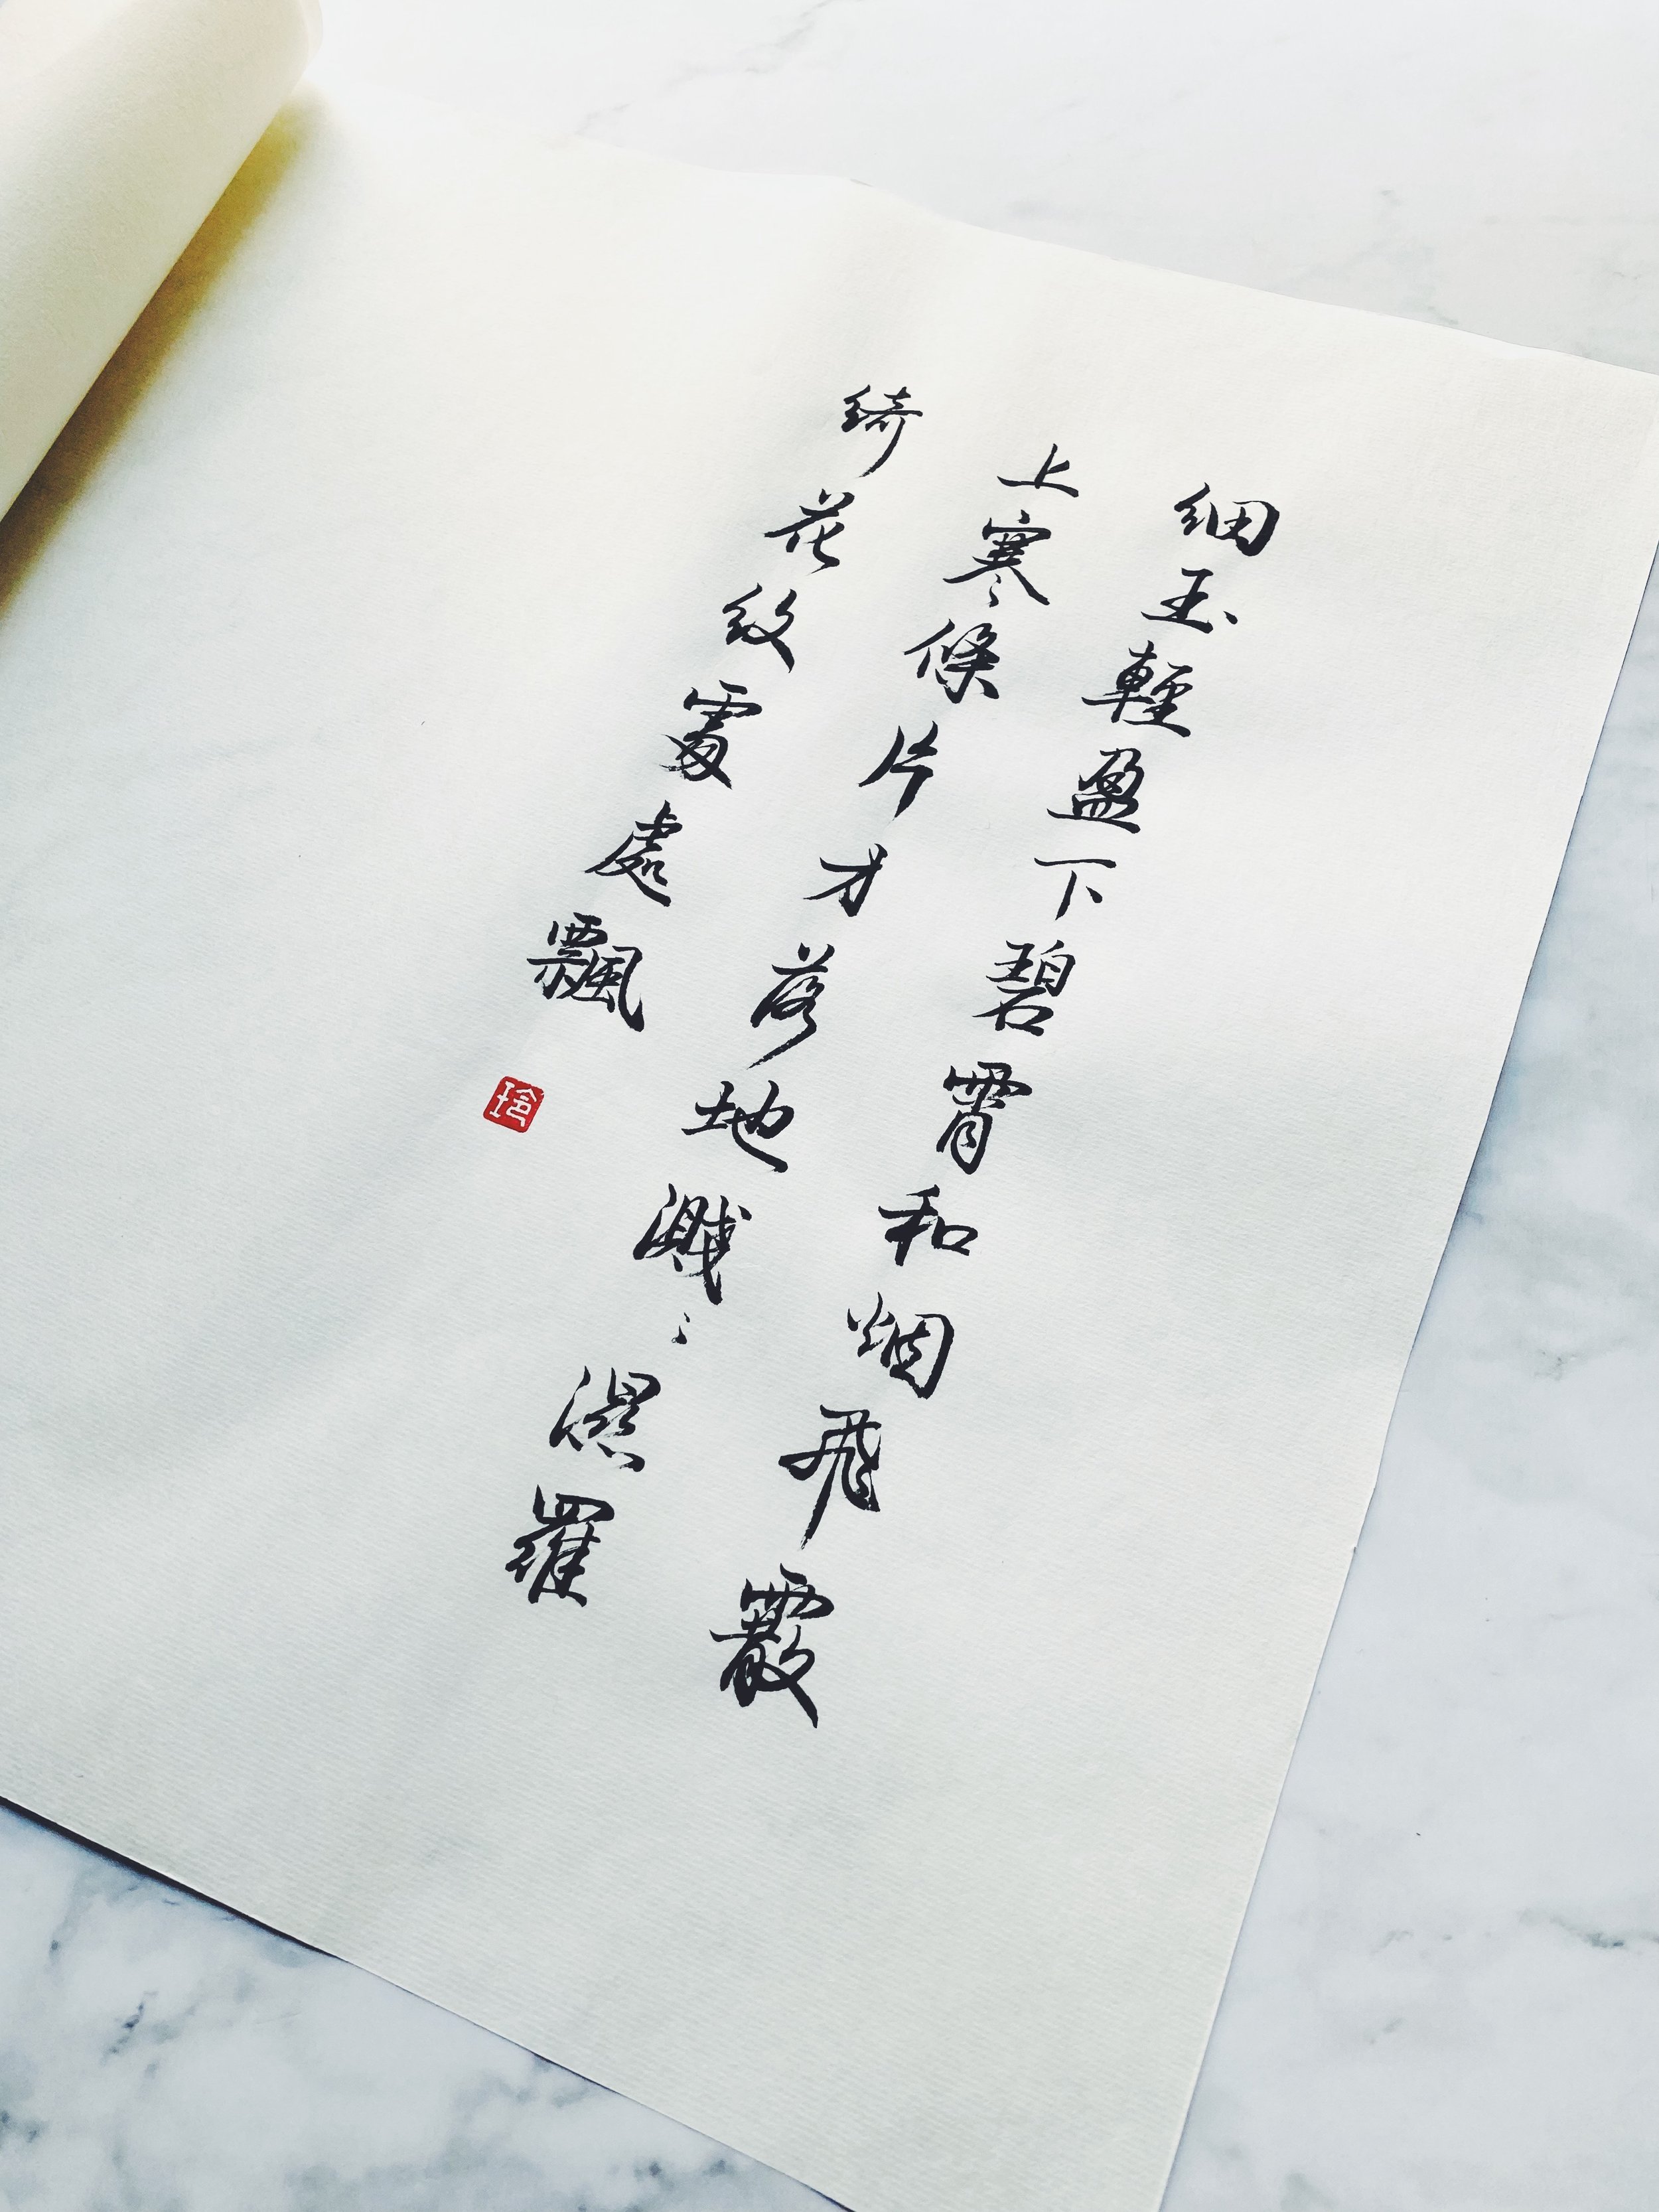 細玉輕盈下碧霄和烟飛霰
上寒條片才落地濺〻濕羅
綺花紋處處飄
玲